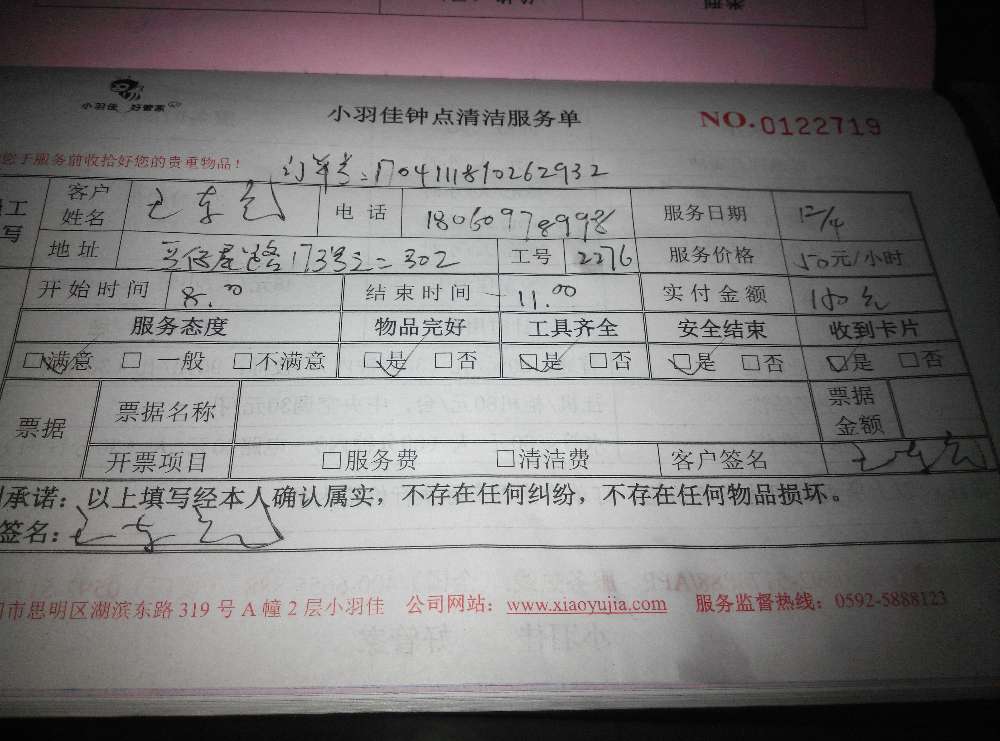 小羽佳 好管家
小羽佳钟点清洁服务单 NO.0122719
于服务前收拾好您的贵重物品！ 订单号：170411181026293​2
工 客户姓名 电话 18060978998 服务日期 12/4
写 地址 173号之二302 工号 2276 服务价格 50元/小时
开始时间 8:00 结束时间 11:00 实付金额 150元
服务态度 物品完好 工具齐全 安全结束 收到卡片
□满意 □一般 □不满意 □是 □否 □是 □否 □是 □否 □是 □否
票据 票据名称 票据金额
开票项目 □服务费 □清洁费 客户签名
承诺：以上填写经本人确认属实，不存在任何纠纷，不存在任何物品损坏。
签名：
市思明区湖滨东路319号A幢2层小羽佳 公司网站：www.xiaoyujia.com 服务监督热线：0592-5888123